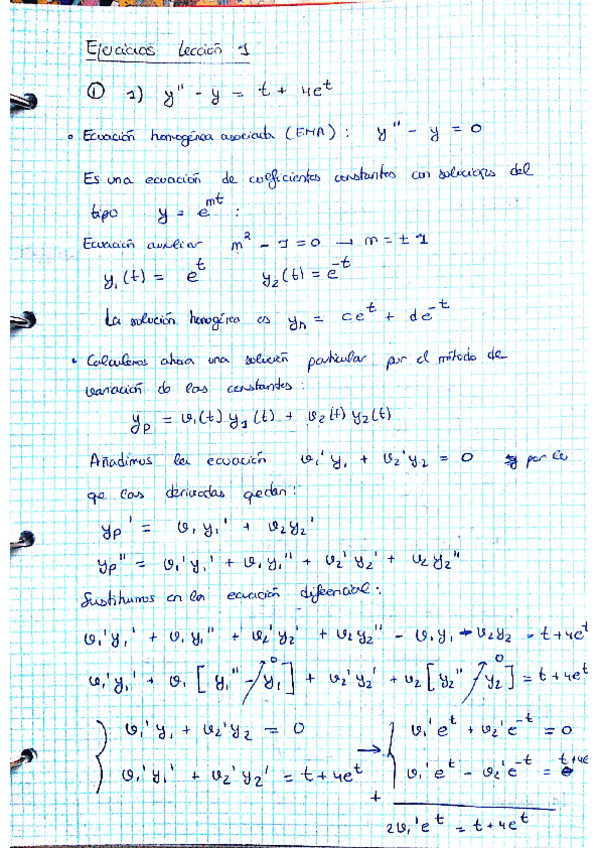 Ejercicios Lección 1
① 1) y'' - y = t + 4e^t
• Ecuación homogénea asociada (EHA): y'' - y = 0
Es una ecuación de coeficientes constantes con soluciones del
tipo y = e^mt :
Ecuación auxiliar m² - 1 = 0 → m = ± 1
y₁(t) = e^t y₂(t) = e^-t
La solución homogénea es yₕ = ce^t + de^-t
• Calculemos ahora una solución particular por el método de
variación de las constantes:
yp = v₁(t) y₁(t) + v₂(t) y₂(t)
Añadimos la ecuación v₁'y₁ + v₂'y₂ = 0 por lo
qe las derivadas qedan:
yp' = v₁y₁' + v₂y₂'
yp'' = v₁'y₁' + v₁y₁'' + v₂'y₂' + v₂y₂''
Sustituimos en la ecuación diferencial:
v₁'y₁' + v₁y₁'' + v₂'y₂' + v₂y₂'' - v₁y₁ - v₂y₂ = t+4e^t
v₁'y₁' + v₁[y₁'' - y₁]⁰ + v₂'y₂' + v₂[y₂'' - y₂]⁰ = t + 4e^t
{ v₁'y₁ + v₂'y₂ = 0 → { v₁'e^t + v₂'e^-t = 0
v₁'y₁' + v₂'y₂' = t+4e^t v₁'e^t - v₂'e^-t = t+4e^t
+
2v₁'e^t = t+4e^t